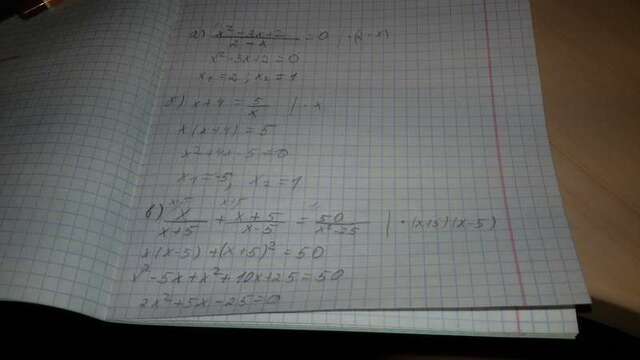 а) (x² - 3x + 2)/(2 - x) = 0 | · (2 - x)
x² - 3x + 2 = 0
x₁ = 2, x₂ = 1
б) x + 4 = 5/x | · x
x(x + 4) = 5
x² + 4x - 5 = 0
x₁ = -5, x₂ = 1
в) x/(x + 5) + (x + 5)/(x - 5) = 50/(x² - 25) | · (x + 5)(x - 5)
x(x - 5) + (x + 5)² = 50
x² - 5x + x² + 10x + 25 = 50
2x² + 5x - 25 = 0